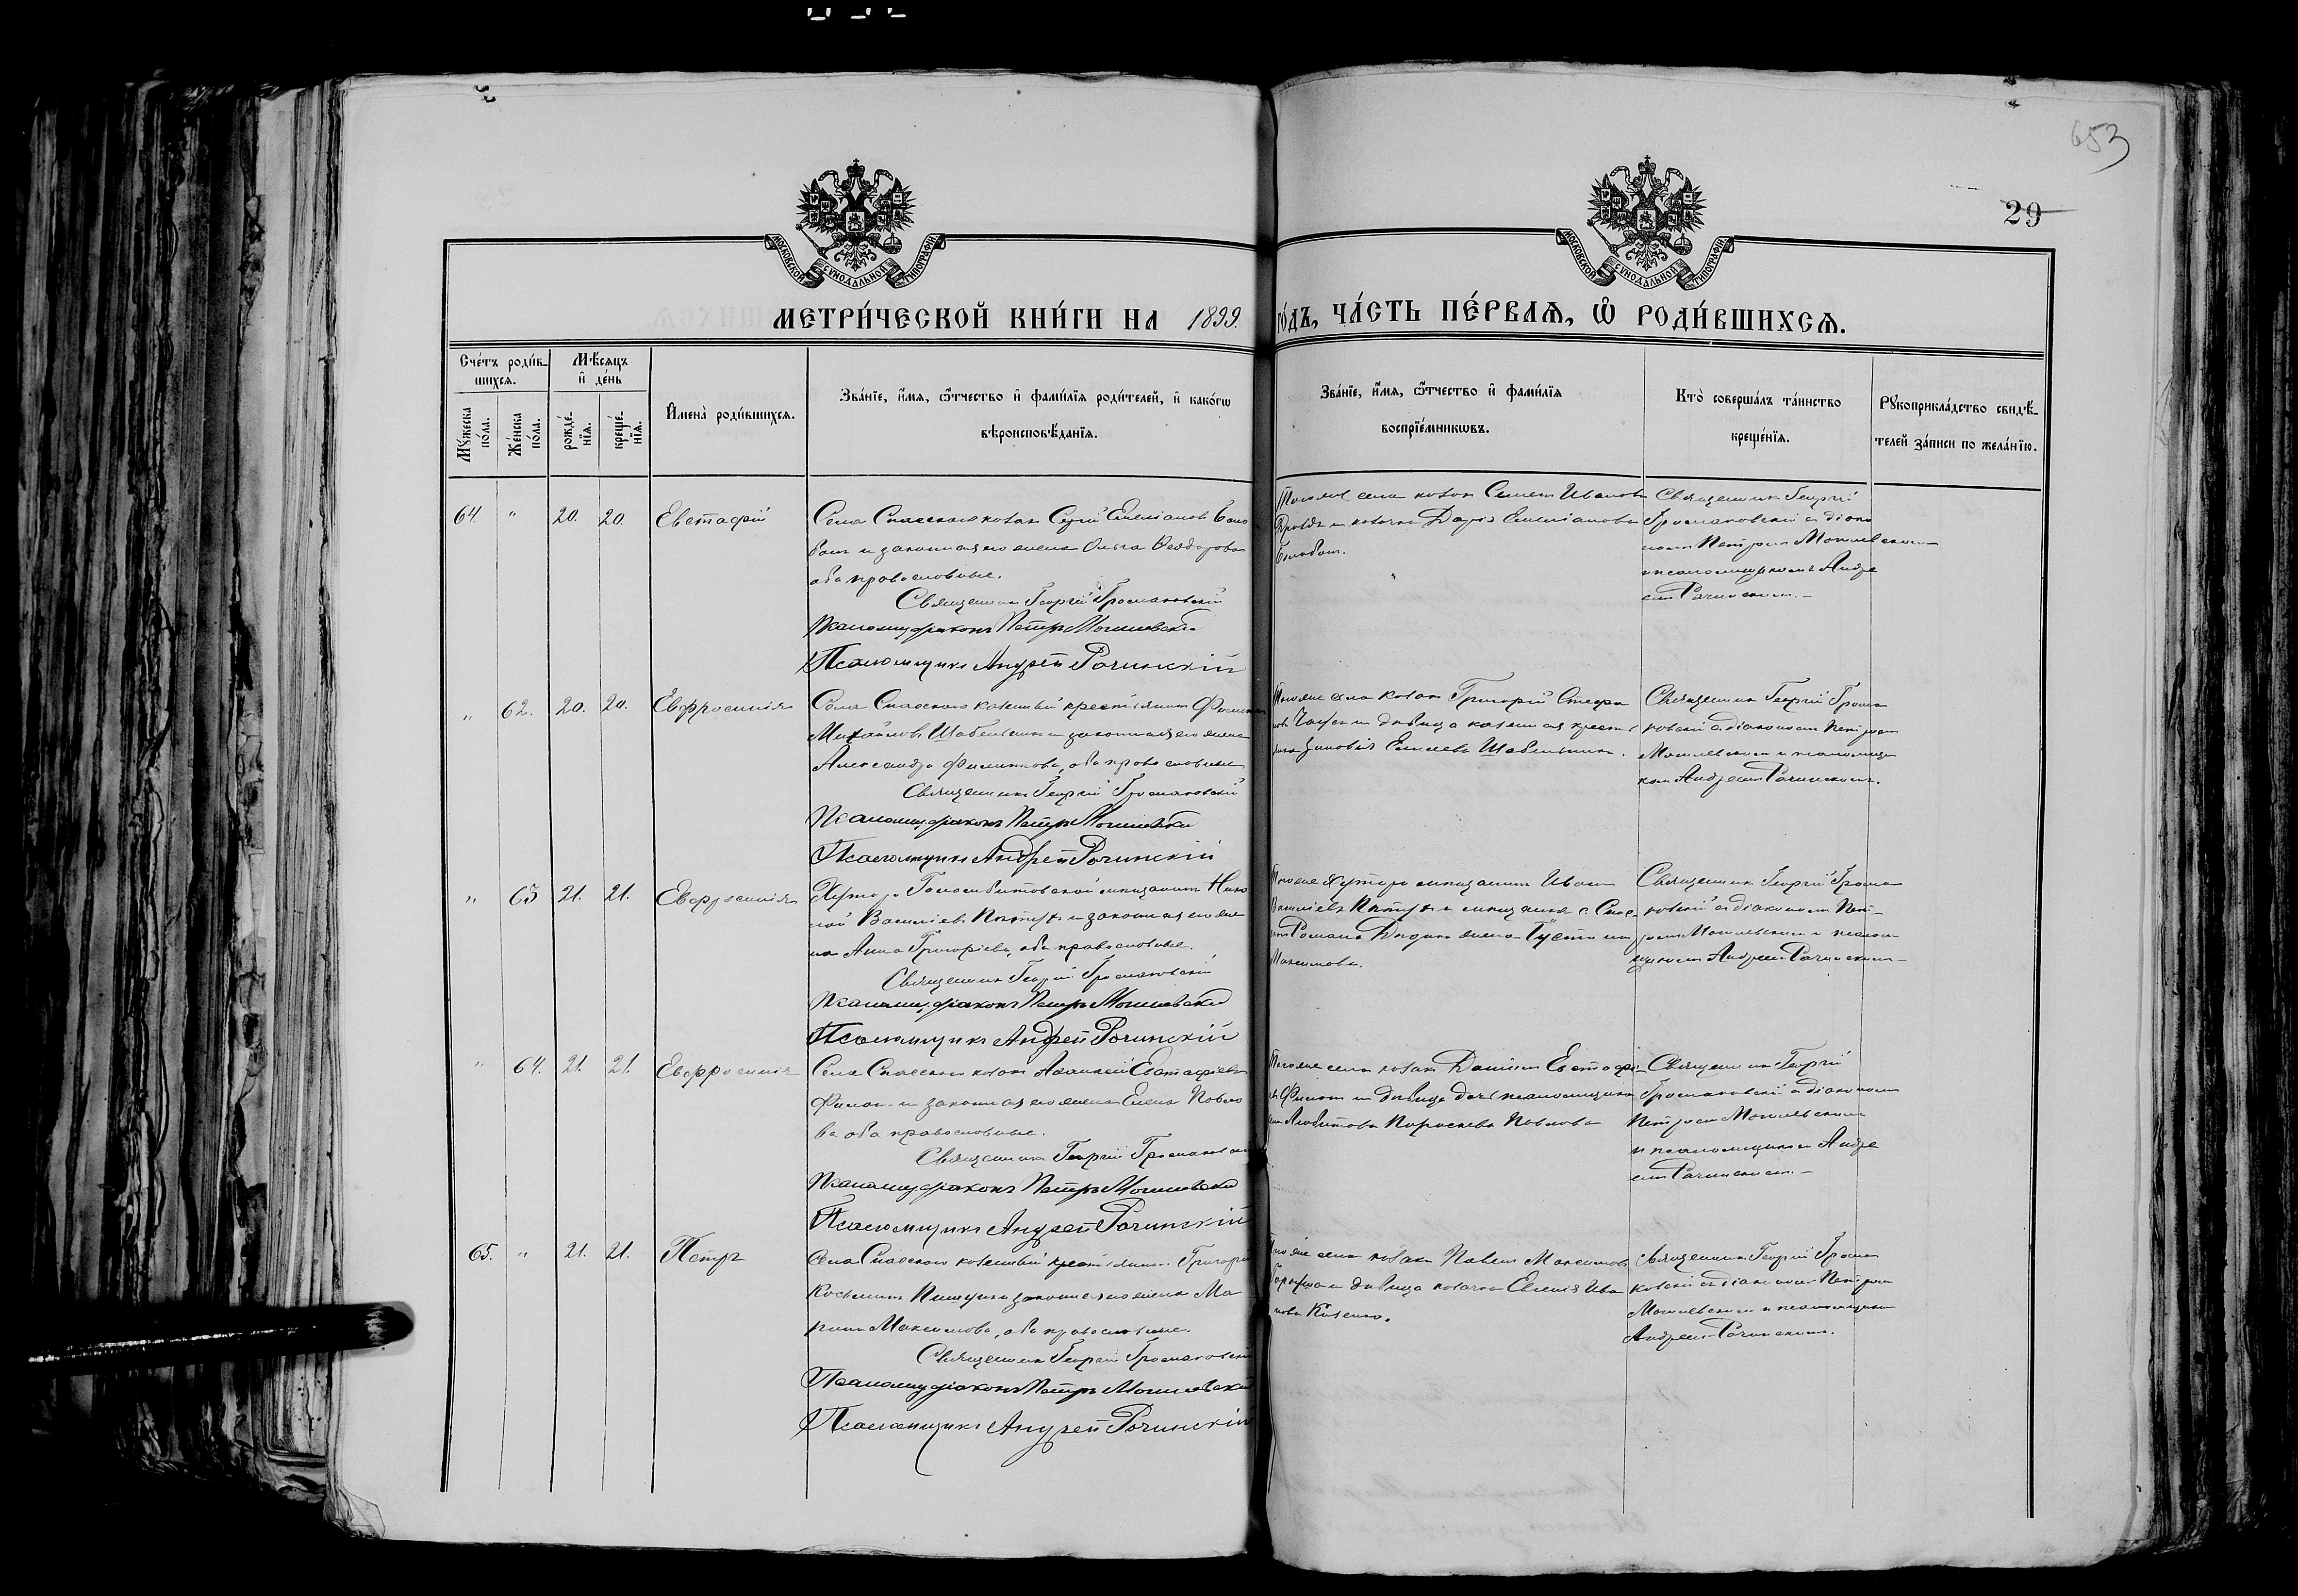 653
29
МОСКОВСКОЙ СѴНОДАЛЬНОЙ ТИПОГРАФІИ
МОСКОВСКОЙ СѴНОДАЛЬНОЙ ТИПОГРАФІИ
МЕТРИ́ЧЕСКОЙ КНИ́ГИ НА 1899.
го́дъ, ЧА́СТЬ ПЕ́РВАѦ, Ѡ҆ РОДИ́ВШИХСѦ.
Сче́тъ роди́в-
шихсѧ.
Мꙋжеска по́ла.
Же́нска по́ла.
Мѣ́сѧцъ
и҆ де́нь
рожде́-
нїѧ.
креще́-
нїѧ.
И҆мена̀ роди́вшихсѧ.
Зва́нїе, и҆́мѧ, ѻ҆́тчество и҆ фами́лїѧ роди́телей, и҆ како́гѡ
вѣроисповѣ́данїѧ.
Зва́нїе, и҆́мѧ, ѻ҆́тчество и҆ фами́лїѧ
воспрїе́мникѡвъ.
Кто̀ соверша́лъ та́инство
креще́нїѧ.
Рꙋкоприкла́дство свидѣ́-
телей за́писи по жела́нїю.
64. " 20. 20. Евстафій
Села Спасскаго козакъ Емеліановъ
и законная его жена Ольга Ѳеодорова
оба православные.
Священникъ Георгій Громаковскій
Псаломщ. діаконъ Петръ Могилевскій
Псаломщикъ Андрей Рачинскій
Того же села козакъ Семенъ Иванов
и козачка Дарія Емеліанова
Священникъ Георгій
Громаковскій съ діако
номъ Петромъ Могилевскимъ
и псаломщикомъ Андре
емъ Рачинскимъ.
" 62. 20. 20. Евфросинія
Села Спасскаго казенный крестьянинъ
Михайловъ Шабельникъ и законная его жена
Александра Филиппова, оба православные
Священникъ Георгій Громаковскій
Псаломщ. діаконъ Петръ Могилевскій
Псаломщикъ Андрей Рачинскій
Того же села козакъ Григорій Стефа
новъ и дѣвица казенная крестья
нка Зиновія Шабельникъ.
Священникъ Георгій Грома
ковскій съ діакономъ Петромъ
Могилевскимъ и псаломщи
комъ Андреемъ Рачинскимъ.
" 63 21. 21. Евфросинія
Хутора мещанинъ Нико
лай Васильевъ и законная его же
на Анна Григоріева, оба православные.
Священникъ Георгій Громаковскій
Псаломщ. діаконъ Петръ Могилевскій
Псаломщикъ Андрей Рачинскій
Того же хутора мещанинъ Иванъ
Васильевъ и мещанина с. Спас-
Романа жена
Максимова.
Священникъ Георгій Грома
ковскій съ діакономъ Пет-
ромъ Могилевскимъ и псалом
щикомъ Андреемъ Рачинскимъ
" 64. 21. 21. Евфросинія
Села Спасскаго козакъ Евстафіевъ
и законная его жена Елена Павло
ва оба православные.
Священникъ Георгій Громаковскій
Псаломщ. діаконъ Петръ Могилевскій
Псаломщикъ Андрей Рачинскій
Того же села козакъ Даніилъ Евстафі
и дѣвица дочь псаломщика
Параскева Павлова
Священникъ Георгій
Громаковскій съ діакономъ
Петромъ Могилевскимъ
и псаломщикомъ Андре
емъ Рачинскимъ.
65. " 21. 21. Петръ
Села Спасскаго казенный крестьянинъ Григорій
Косьминъ и законная его жена Ма
рина Максимова, оба православные.
Священникъ Георгій Громаковскій
Псаломщ. діаконъ Петръ Могилевскій
Псаломщикъ Андрей Рачинскій
Того же села козакъ Павелъ Максимовъ
и дѣвица козачка Евгенія Ива
нова
Священникъ Георгій Грома
ковскій съ діакономъ Петромъ
Могилевскимъ и псаломщикомъ
Андреемъ Рачинскимъ.